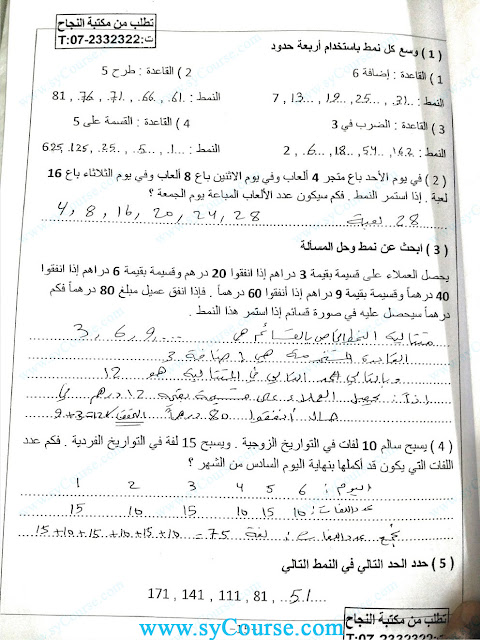 تطلب من مكتبة النجاح
ت:T:07-2332322
( 1 ) وسع كل نمط باستخدام أربعة حدود
1 ) القاعدة : إضافة 6
2 ) القاعدة : طرح 5
النمط : 7 , 13 , 19 , 25 , 31
النمط : 81 , 76 , 71 , 66 , 61
3 ) القاعدة : الضرب في 3
4 ) القاعدة : القسمة على 5
النمط : 2 , 6 , 18 , 54 , 162
النمط : 625 , 125 , 25 , 5 , 1
( 2 ) في يوم الأحد باع متجر 4 ألعاب وفي يوم الاثنين باع 8 ألعاب وفي يوم الثلاثاء باع 16
لعبة . إذا استمر النمط . فكم سيكون عدد الألعاب المباعة يوم الجمعة ؟
4 , 8 , 16 , 20 , 24 , 28
28 لعبة
( 3 ) ابحث عن نمط وحل المسألة
يحصل العملاء على قسيمة بقيمة 3 دراهم إذا انفقوا 20 درهم وقسيمة بقيمة 6 دراهم إذا انفقوا
40 درهماً وقسيمة بقيمة 9 دراهم إذا أنفقوا 60 درهماً . فإذا انفق عميل مبلغ 80 درهماً فكم
درهماً سيحصل عليه في صورة قسائم إذا استمر هذا النمط .
متتالية النمط الخاص بالقسائم هي 3 , 6 , 9 ...
القاعدة المستخدمة هي إضافة 3
وبالتالي الحد التالي في المتتالية هو 12
إذاً يحصل العملاء على قسيمة بقيمة 12 درهم في
حال أنفقوا 80 درهماً 9+3=12
( 4 ) يسبح سالم 10 لفات في التواريخ الزوجية . ويسبح 15 لفة في التواريخ الفردية . فكم عدد
اللفات التي يكون قد أكملها بنهاية اليوم السادس من الشهر ؟
اليوم : 1 2 3 4 5 6
عدد اللفات : 15 10 15 10 15 10
نجمع عدد اللفات : 15+10+15+10+15+10 = 75 لفة
( 5 ) حدد الحد التالي في النمط التالي
171 , 141 , 111 , 81 , 51
تطلب من مكتبة النجاح
T:07-2332322
www.syCourse.com